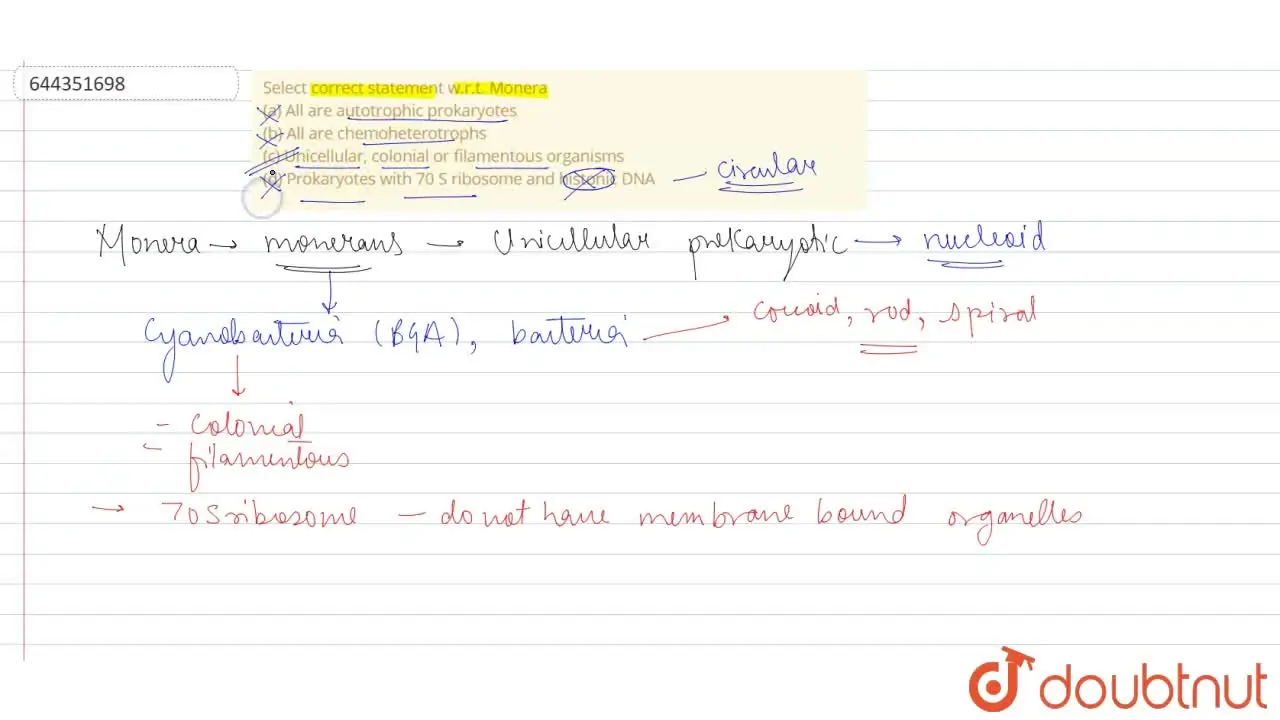 644351698
Select correct statement w.r.t. Monera
(a) All are autotrophic prokaryotes
(b) All are chemoheterotrophs
(c) Unicellular, colonial or filamentous organisms
(d) Prokaryotes with 70 S ribosome and histonic DNA — circular
Monera → monerans → Unicellular prokaryotic → nucleoid
Cyanobacteria (BGA), bacteria
coccoid, rod, spiral
- Colonial
- filamentous
→ 70S ribosome — do not have membrane bound organelles
doubtnut